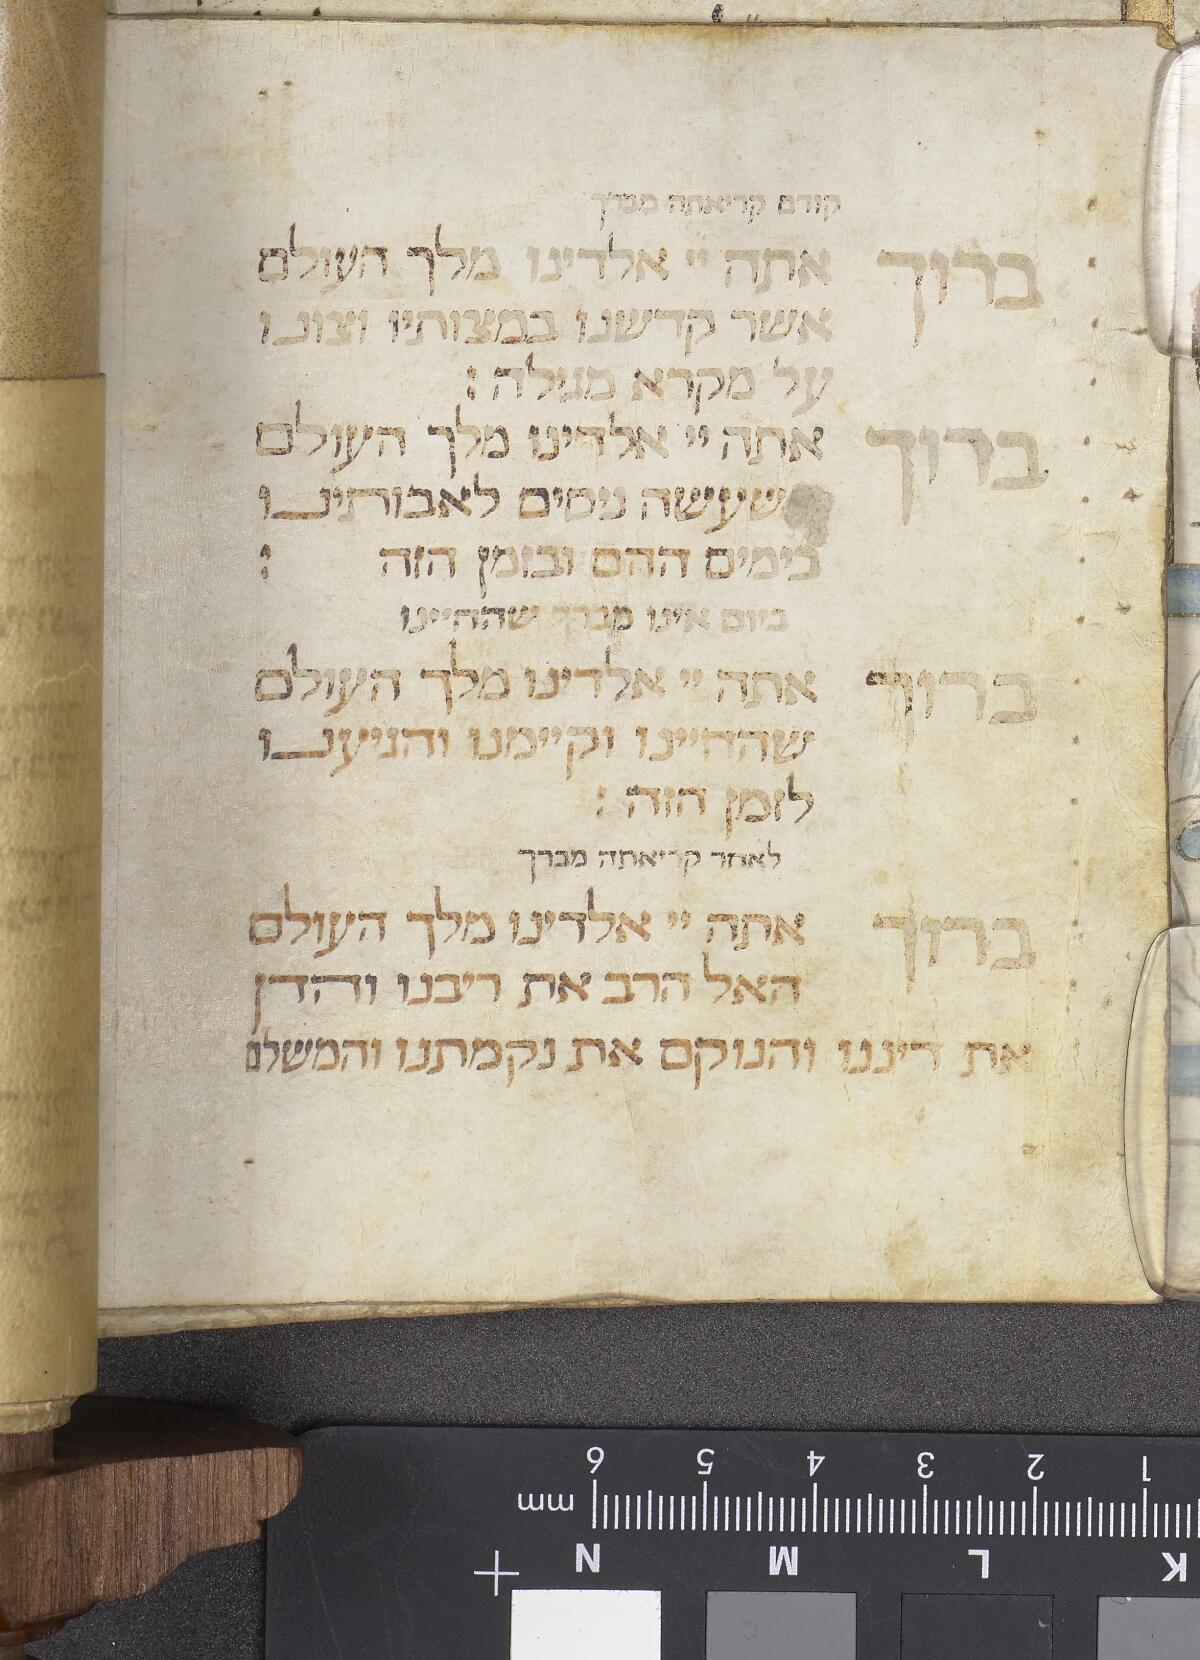 קודם קריאתה מברך
ברוך אתה יי אלדינו מלך העולם
אשר קדשנו במצותיו וצונו
על מקרא מגילה :
ברוך אתה יי אלדינו מלך העולם
שעשה ניסים לאבותינו
בימים ההם ובזמן הזה :
ביום אינו מברך שהחיינו
ברוך אתה יי אלדינו מלך העולם
שהחיינו וקיימנו והגיענו
לזמן הזה :
לאחר קריאתה מברך
ברוך אתה יי אלדינו מלך העולם
האל הרב את ריבנו והדן
את דיננו והנוקם את נקמתנו והמשלם
6 5 4 3 2 1
mm
N M L K